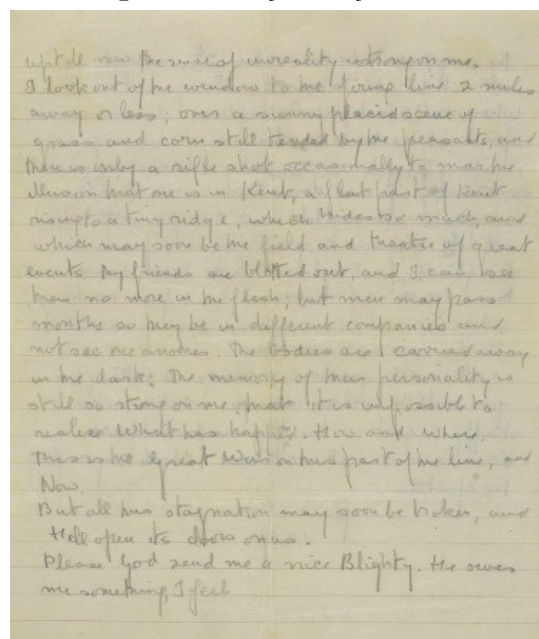 up till now the sense of unreality is strong on me.
I look out of the window to the firing line 2 miles
away or less, over a sunny placid scene of
grass and corn still tended by the peasants, and
there is only a rifle shot occasionally to mar the
illusion that one is in Kent, a flat part of Kent
rising to a tiny ridge, which hides so much, and
which may soon be the field and theatre of great
events. My friends are blotted out, and I can see
them no more in the flesh; but men may pass
months so may be in different companies and
not see one another. The bodies are carried away
in the dark; The memory of their personality is
still so strong on me, that it is impossible to
realise What has happ. How and Where.
This is the Great War on this part of the line, and
Now.
But all this stagnation may soon be broken, and
Hell open its doors on us.
Please God send me a nice Blighty. He owes
me something, I feel